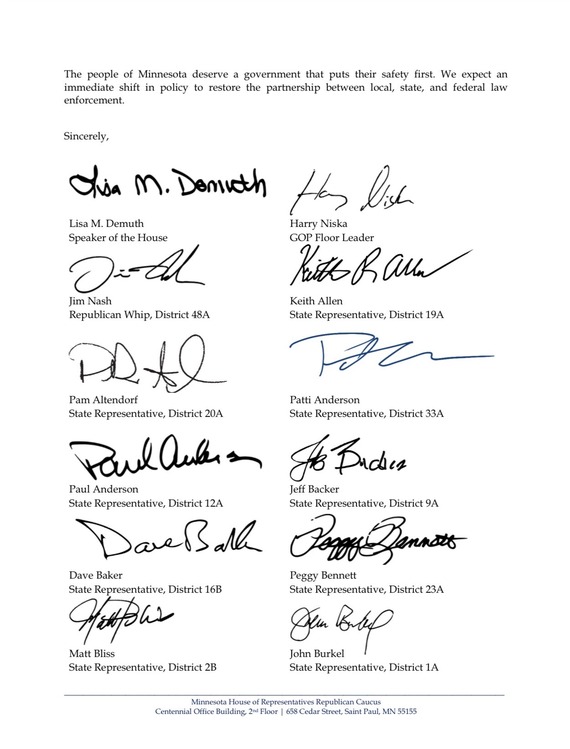 The people of Minnesota deserve a government that puts their safety first. We expect an
immediate shift in policy to restore the partnership between local, state, and federal law
enforcement.
Sincerely,
Lisa M. Demuth
Lisa M. Demuth
Speaker of the House
Harry Niska
GOP Floor Leader
Jim Nash
Republican Whip, District 48A
Keith R Allen
Keith Allen
State Representative, District 19A
Pam Altendorf
State Representative, District 20A
Patti Anderson
State Representative, District 33A
Paul Anderson
State Representative, District 12A
Jeff Backer
State Representative, District 9A
Dave Baker
State Representative, District 16B
Peggy Bennett
Peggy Bennett
State Representative, District 23A
Matt Bliss
Matt Bliss
State Representative, District 2B
John Burkel
John Burkel
State Representative, District 1A
Minnesota House of Representatives Republican Caucus
Centennial Office Building, 2nd Floor | 658 Cedar Street, Saint Paul, MN 55155